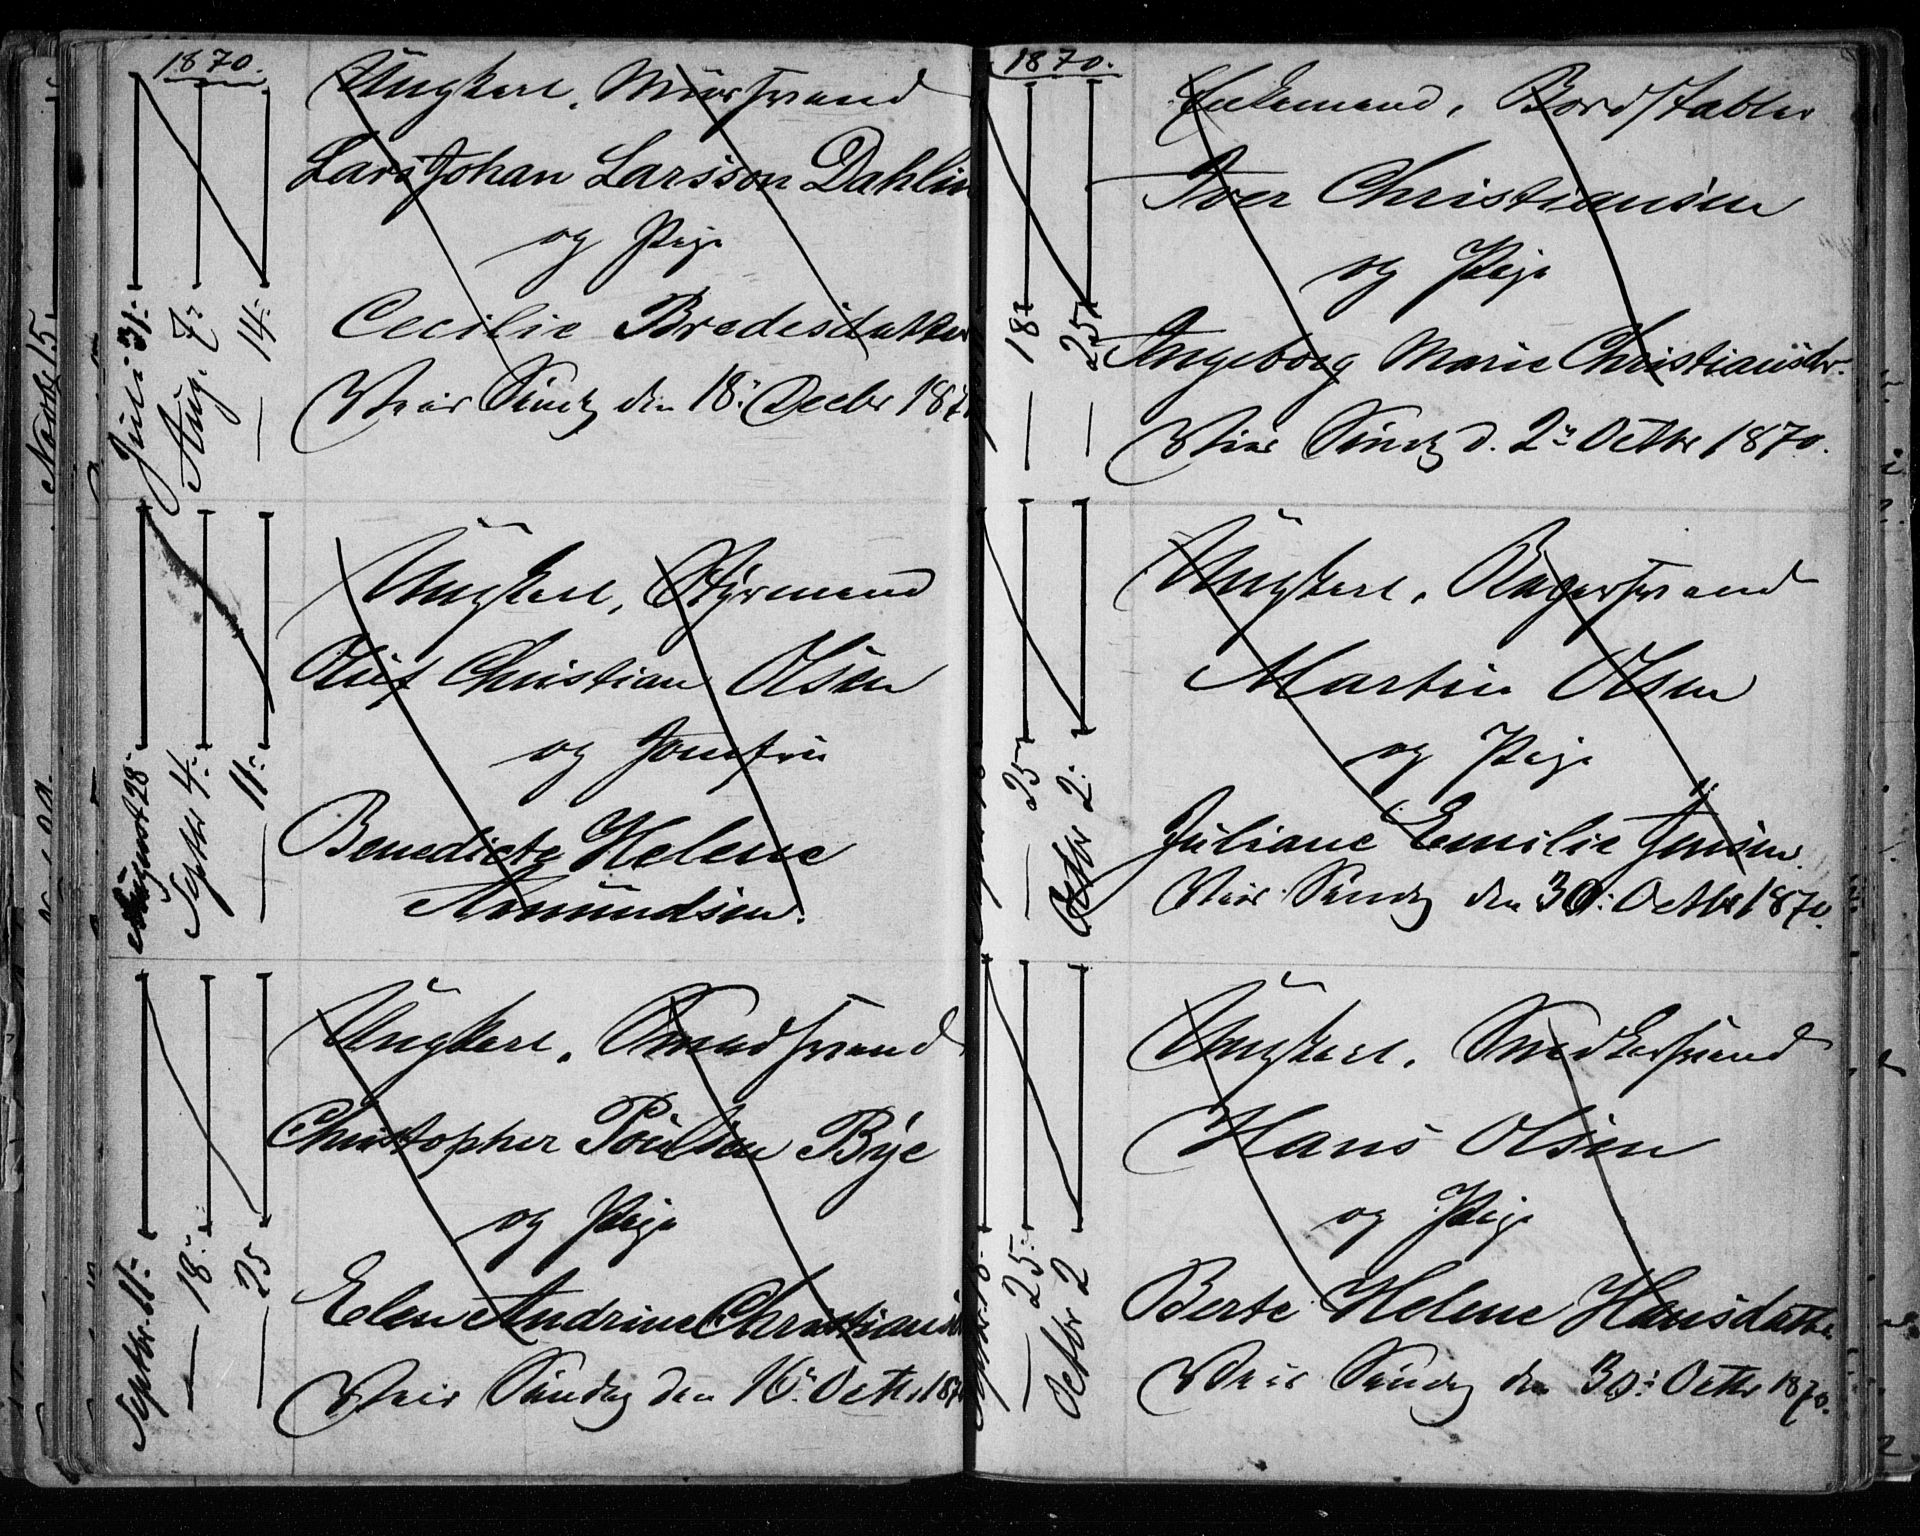 1870.
Juli 31.
Aug. 7.
— 14.
Ungkarl, Mursvend
Lars Johan Larsson Dahlin
og Pige
Cecilie Bredesdatter
Viet Søndg den 18. Decbr 187
August 28.
Septbr 4.
— 11.
Ungkarl, Styrmand
Oluf Christian Olsen
og Jomfru
Benedicte Helene
Amundsen.
Septbr. 11.
— 18.
— 25
Ungkarl, Smedsvend
Christopher Poulsen Bye
og Pige
Elen Andrine Christians
Viet Søndag den 16. Octbr 187
1870.
— 18.
— 25.
Enkemand, Bordstabler
Iver Christiansen
og Pige
Ingeborg Marie Christiansdtr.
Viet Søndg d. 2. Octbr 1870.
— 25
Octbr 2.
Ungkarl, Bagersvend
Martin Olsen
og Pige
Juliane Emilie Jensen.
Viet Søndg den 30. Octbr 1870.
Septbr. 18.
— 25.
Octbr 2
Ungkarl, Snedkersvend
Hans Olsen
og Pige
Berte Helene Hansdatter
Viet Søndg den 30. Octbr 1870.